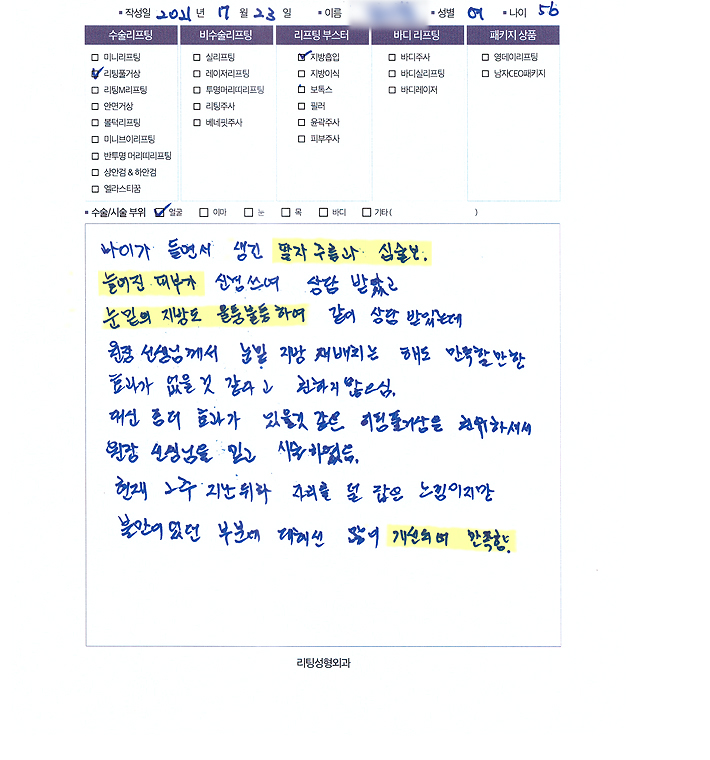 ▪ 작성일 2021 년 7 월 23 일 ▪ 이름 ▪ 성별 여 ▪ 나이 56
수술리프팅 비수술리프팅 리프팅 부스터 바디 리프팅 패키지 상품
미니리프팅 실리프팅 지방흡입 바디주사 영데이리프팅
리팅풀거상 레이저리프팅 지방이식 바디실리프팅 남자CEO패키지
리팅M리프팅 투명머리띠리프팅 보톡스 바디레이저
안면거상 리팅주사 필러
볼턱리프팅 베네핏주사 윤곽주사
미니브이리프팅 피부주사
반투명 머리띠리프팅
상안검 & 하안검
엘라스티꿈
▪ 수술/시술 부위 얼굴 이마 눈 목 바디 기타 ( )
나이가 들면서 생긴 팔자 주름과 심술보,
늘어진 피부가 신경쓰여 상담 받았고
눈밑의 지방도 울퉁불퉁하여 같이 상담 받았는데
원장 선생님께서 눈밑 지방 재배치는 해도 만족할만한
효과가 없을것 같다고 권하지 않으심,
대신 좀더 효과가 있을것 같은 리팅풀거상을 권유하셔서
원장 선생님을 믿고 시술하였음,
현재 2주 지난뒤라 자리를 덜 잡은 느낌이지만
불만이었던 부분에 대해선 많이 개선되어 만족함.
리팅성형외과